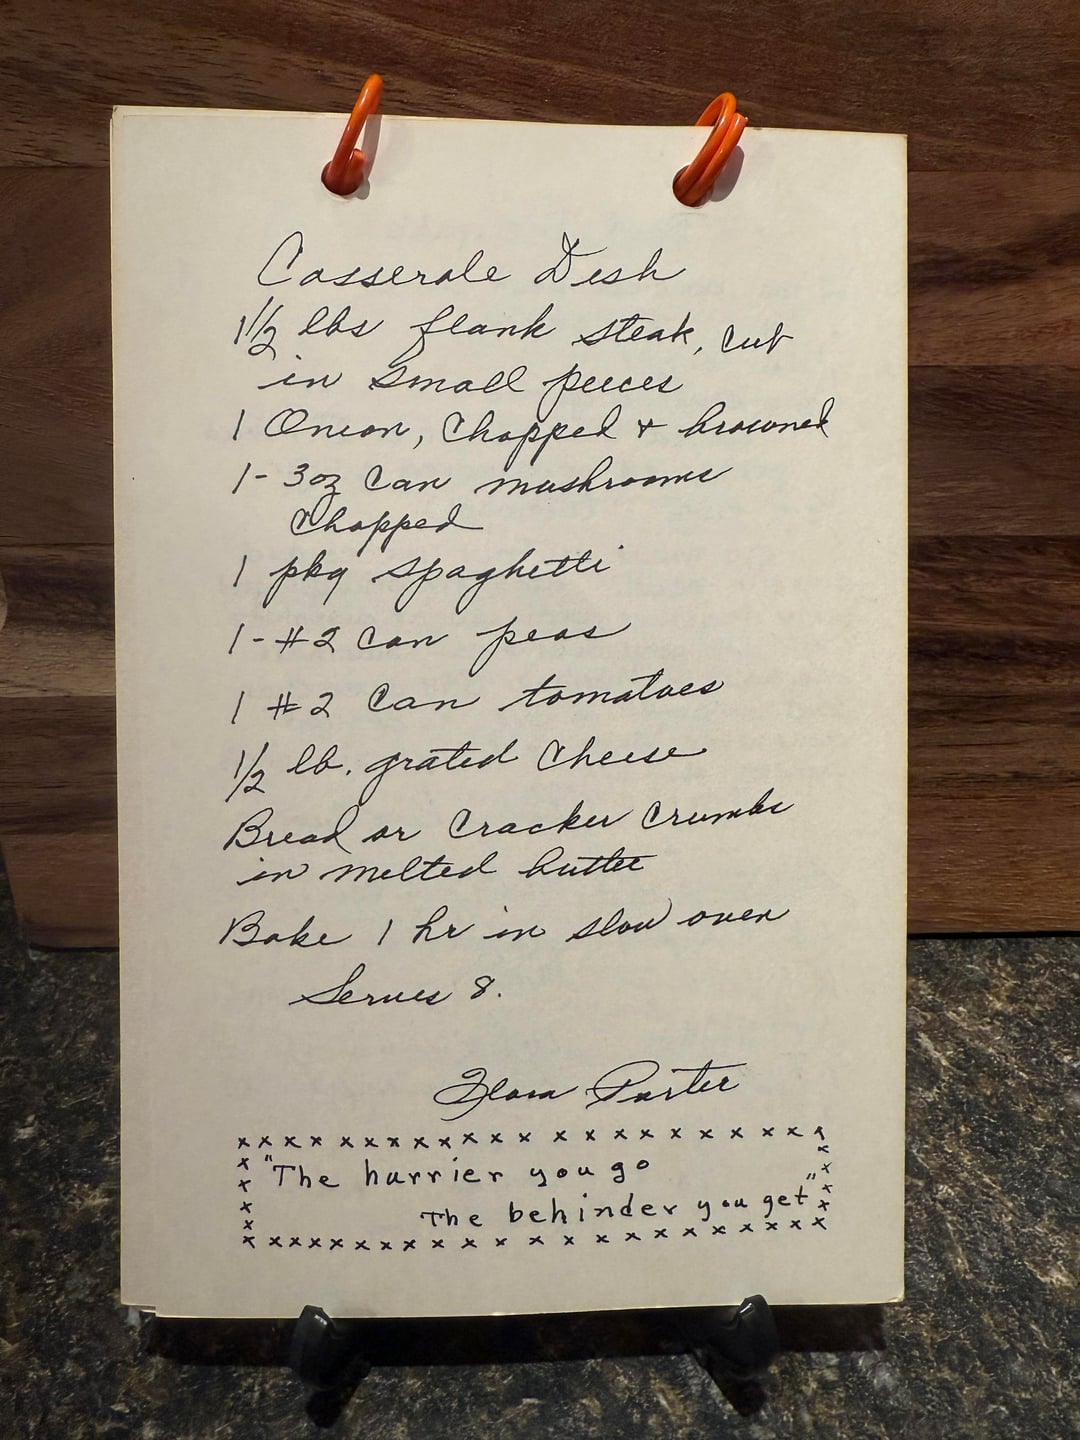 Casserole Dish
1 1/2 lbs flank steak, cut
in small pieces
1 Onion, Chopped + browned
1- 3oz Can mushrooms
Chopped
1 pkg spaghetti
1- #2 can peas
1 #2 Can tomatoes
1/2 lb. grated Cheese
Bread or Cracker Crumbs
in melted butter
Bake 1 hr in slow oven
Serves 8.
Porter
"The hurrier you go
The behinder you get"